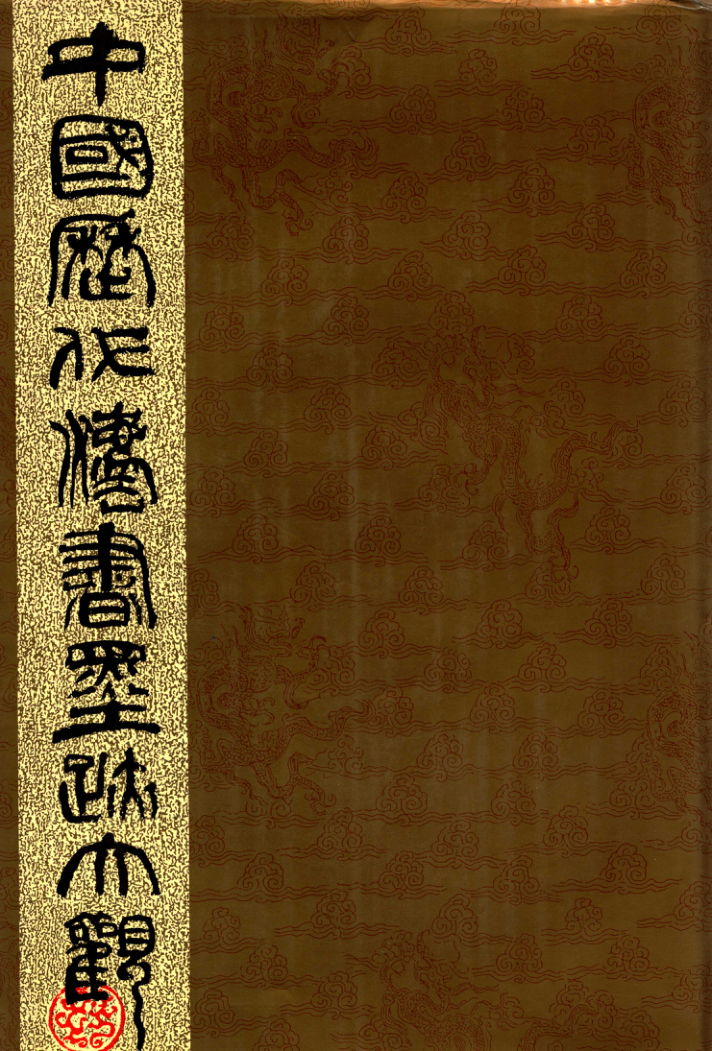 中國歷代灋書墨迹大觀